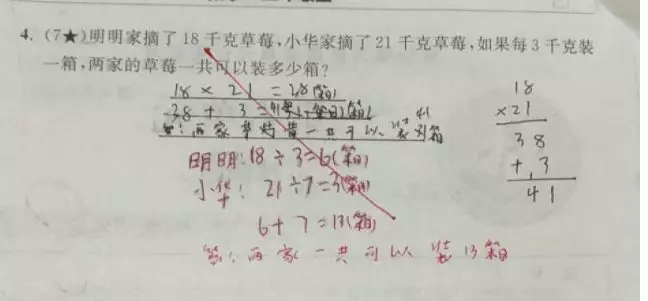 4. (7★)明明家摘了18千克草莓,小华家摘了21千克草莓,如果每3千克装
一箱,两家的草莓一共可以装多少箱?
18 × 21 = 38(箱)
38 + 3 = 41
答:两家草莓一共可以装41箱
明明:18÷3=6(箱)
小华:21÷7=3(箱)
6+7=13(箱)
答:两家一共可以装13箱
18
×21
38
+,3
41